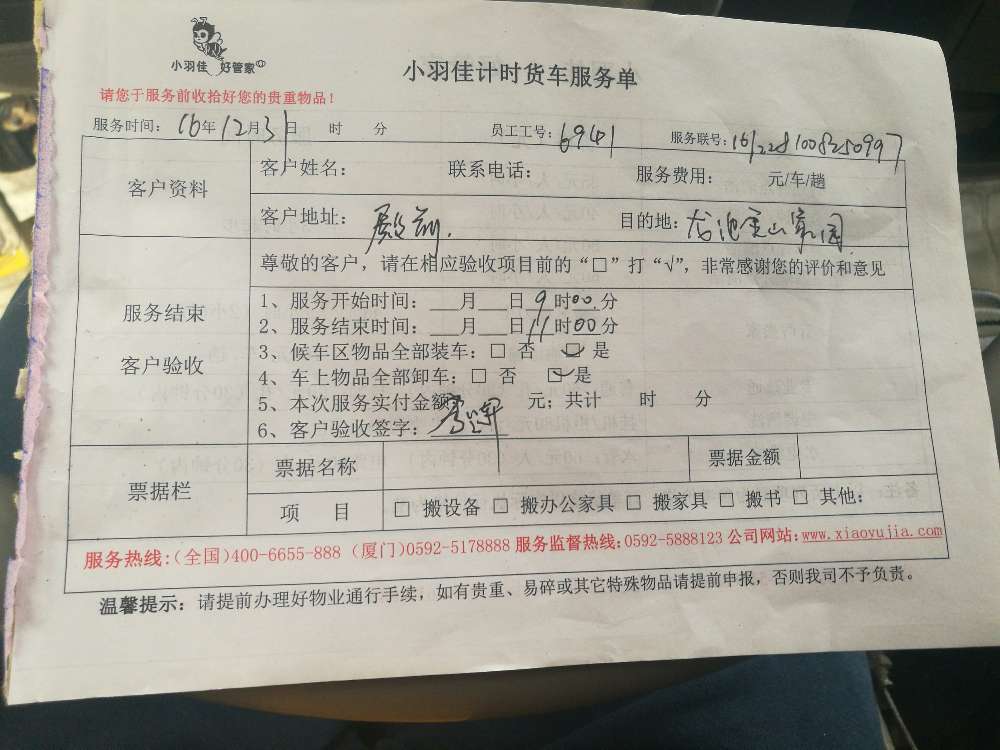 小羽佳 好管家
小羽佳计时货车服务单
请您于服务前收拾好您的贵重物品！
服务时间：16年12月31日 时 分 员工工号：6941 服务联号：1612281008250997
客户资料
客户姓名： 联系电话： 服务费用： 元/车/趟
客户地址：殿前. 目的地：龙池金山家园
服务结束
客户验收
尊敬的客户，请在相应验收项目前的“□”打“√”，非常感谢您的评价和意见
1、服务开始时间：___月___日9时00分
2、服务结束时间：___月___日11时00分
3、候车区物品全部装车：□ 否 ☑ 是
4、车上物品全部卸车：□ 否 ☑ 是
5、本次服务实付金额 元；共计 时 分
6、客户验收签字：
票据栏
票据名称 票据金额
项 目 □ 搬设备 □ 搬办公家具 □ 搬家具 □ 搬书 □ 其他：
服务热线：（全国）400-6655-888（厦门）0592-5178888 服务监督热线：0592-5888123 公司网站：www.xiaoyujia.com
温馨提示：请提前办理好物业通行手续，如有贵重、易碎或其它特殊物品请提前申报，否则我司不予负责。